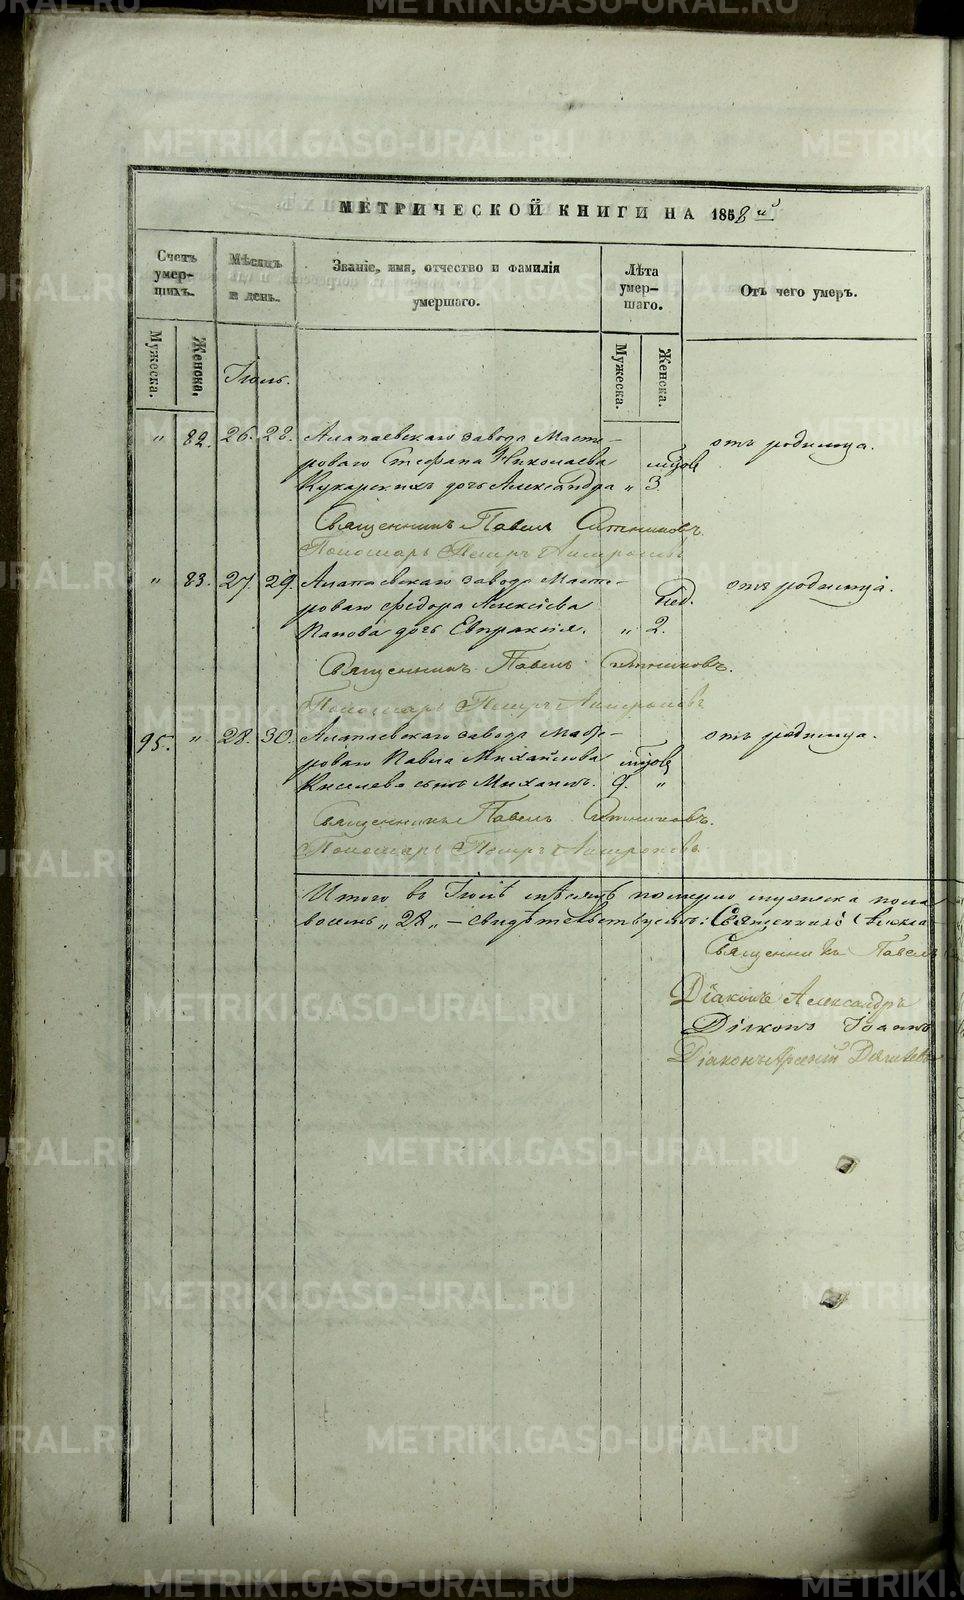 МЕТРИЧЕСКОЙ КНИГИ НА 1858й
Счетъ умер-шихъ.
Мѣсяцъ и день.
Званіе, имя, отчество и фамилія умершаго.
Лѣта умер-шаго.
Отъ чего умеръ.
Мужеска.
Женска.
Мужеска.
Женска.
Іюль.
" 82. 26. 28. Алапаевскаго завода Масте- отъ родимца.
роваго Стефана Николаева
Кукарскихъ дочь Александра " 3
Священникъ Павелъ Ситниковъ.
Пономарь Петръ
" 83. 27. 29. Алапаевскаго завода Масте- отъ родимца.
роваго Федора Алексѣева нед.
Попова дочь Евпраксія. " 2.
Священникъ Павелъ Ситниковъ.
Пономарь Петръ
95. " 28. 30. Алапаевскаго завода отъ родимца.
роваго Павла Михайлова
Киселева сынъ Михаилъ. 9. "
Священникъ Павелъ Ситниковъ.
Пономарь Петръ
Итого въ Іюлѣ мѣсяцѣ померло мужеска пола
"28" — свидѣтельствуемъ: Священникъ
Священникъ Павелъ
Діаконъ Александръ
Діаконъ Іоаннъ
Діаконъ Арсеній
METRIKI.GASO-URAL.RU